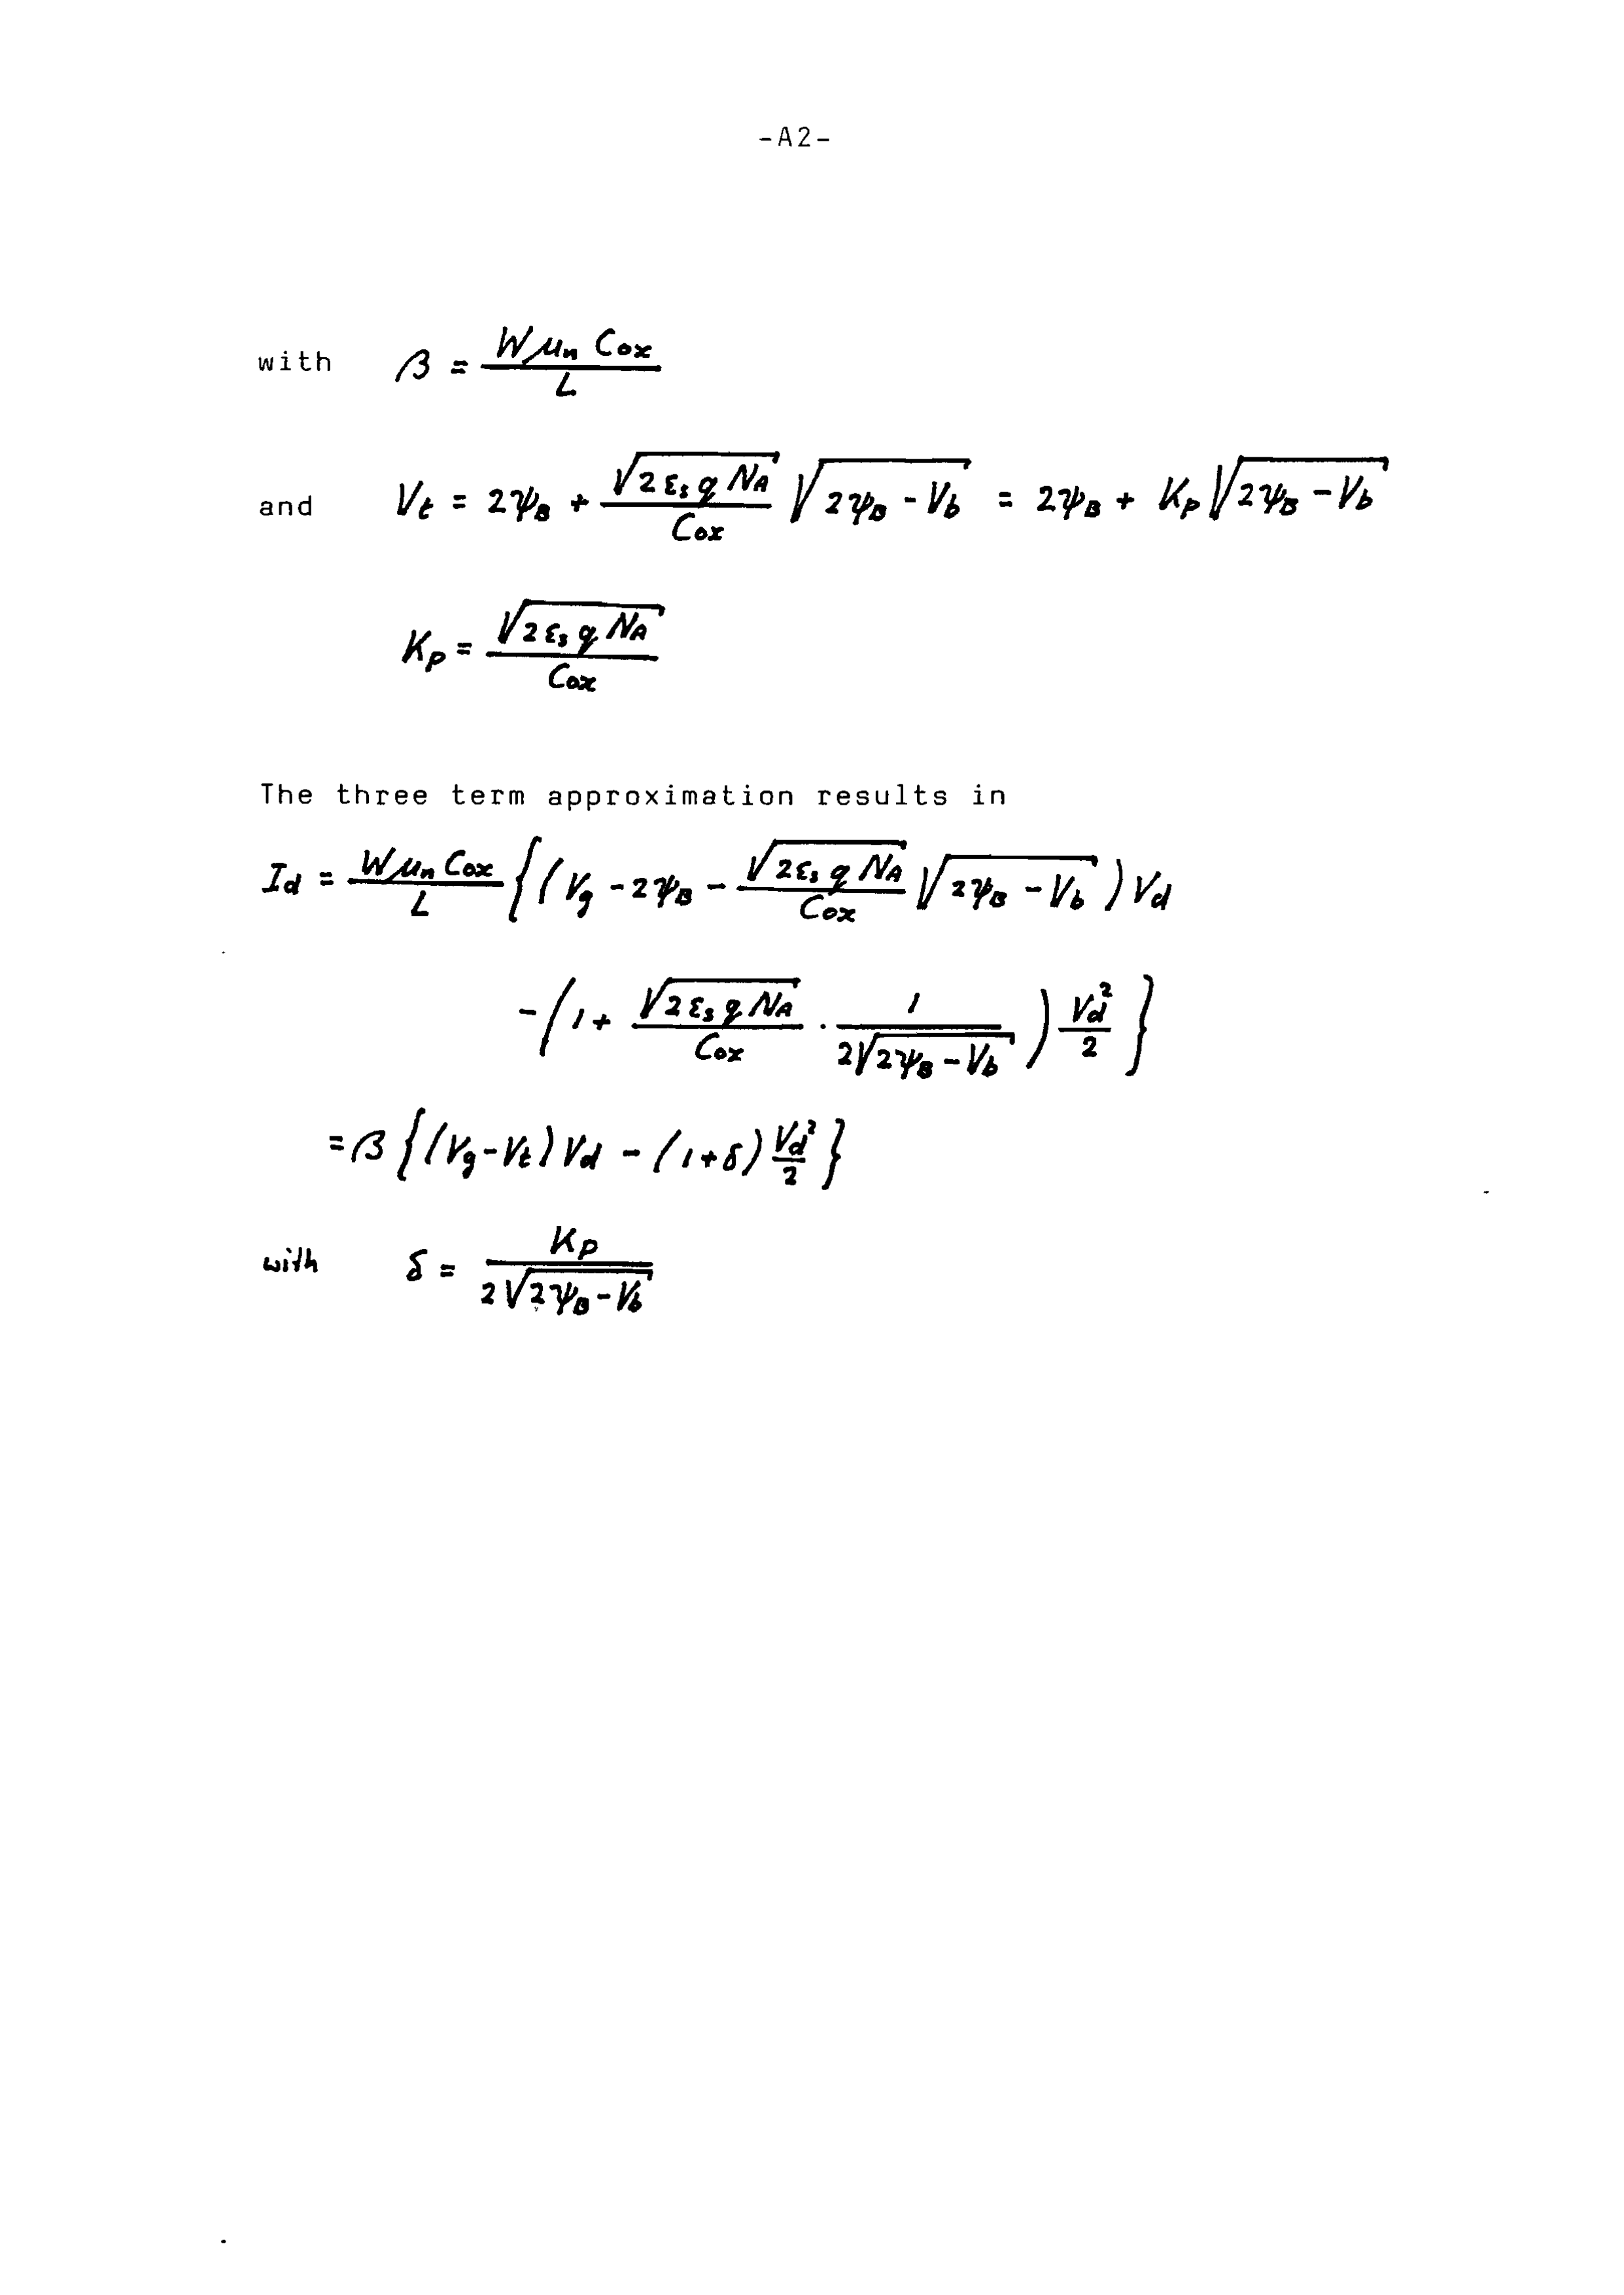 -A2-
with β = \frac{W μ_n Cox}{L}
and V_t = 2ψ_B + \frac{\sqrt{2 ε_s q N_A}}{Cox} \sqrt{2ψ_B - V_b} = 2ψ_B + K_p \sqrt{2ψ_B - V_b}
K_p = \frac{\sqrt{2 ε_s q N_A}}{Cox}
The three term approximation results in
I_d = \frac{W μ_n Cox}{L} \{ ( V_g - 2ψ_B - \frac{\sqrt{2 ε_s q N_A}}{Cox} \sqrt{2ψ_B - V_b} ) V_d
- ( 1 + \frac{\sqrt{2 ε_s q N_A}}{Cox} · \frac{1}{2\sqrt{2ψ_B - V_b}} ) \frac{V_d^2}{2} \}
= β \{ ( V_g - V_t ) V_d - ( 1 + δ ) \frac{V_d^2}{2} \}
with δ = \frac{K_p}{2\sqrt{2ψ_B - V_b}}